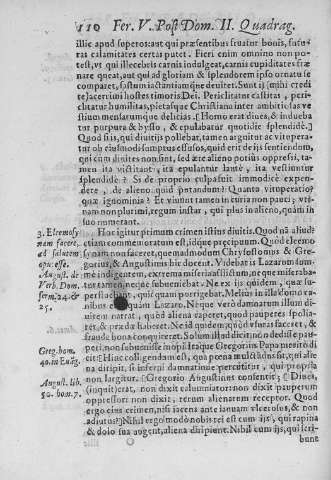 110 Fer. V. Post Dom. II. Quadrag.
illic apud superos: aut qui præsentibus fruatur bonis, futu-
ras calamitates certas putet. Fieri enim omnino non po-
test, vt qui illecebris carnis indulgeat, carnis cupiditates fræ-
nare queat, aut qui ad gloriam & splendorem ipso ornatu se
comparet, fastum iactantiamque deuitet. Sunt ij (mihi cred
te) acerrimi hostes timoris Dei. Periclitatur castitas, peri-
clitatur humilitas, pietasque Christiana inter ambitiosas ve
stium mensarumque delicias. Homo erat diues, & indueba
tur purpura & bysso, & epulabatur quotidie splendidè.
Quod si is, qui diuitijs pollebat, tamen arguitur ac vitupera-
tur ob eiusmodi sumptus effusos, quid erit de ijs sentiendum,
qui cum diuites non sint, sed ære alieno potiùs oppressi, ta-
men ita victitant, ita epulantur lautè, ita vestiuntur
splendidè? Si de proprio culpatur immodicè expen-
dere, de alieno quid putandum? Quanta vituperatio,
quæ ignominia? Et viuunt tamen in curia non pauci, vti-
nam non plurimi, regum instar, qui plus in alieno, quàm in
suo numerant.
3. Eleemosy
nam facere,
ad salutem
opus esse.
August. de
Verb. Dom.
serm. 24. &
25.
Hoc igitur primum crimen istius diuitis. Quod nā aliud?
etiam commemoratum est, idque præcipuum. Quòd eleemo
synam non faceret, quemadmodum Chrysostomus & Gre-
gorius, & Augustinus hic docent. Videbat is Lazarum sum-
mè indigentem, extrema miseria afflictum, neque miserаba-
tur tamen, neque subueniebat. Ne ex ijs quidem, quæ su-
perflua erant, quicquam porrigebat. Melius in illa domo ca-
nibus erat, quàm Lazaro. Neque verò damnatur illum di-
uitem
narrat, quòd aliena raperet, quòd pauperes spolia-
ret, quòd prædæ haberet. Ne id quidem, quòd vsuras faceret, &
Greg. hom.
40. in Euāg.
August. lib.
50. hom. 7.
non largitur. Augustinus consentit; Diues,
(inquit) erat, non dixit calumniator: non dixit pauperum
oppressor: non dixit, rerum alienarum receptor. Quod
ergo eius crimen, nisi iacens ante ianuam vlcerosus, & non
adiutus? Nihil ergo modò nobis rei est cum ijs, qui rapinis
& dolo sua augent, aliena diripiunt. Nihil cum ijs, qui seri-
bunt